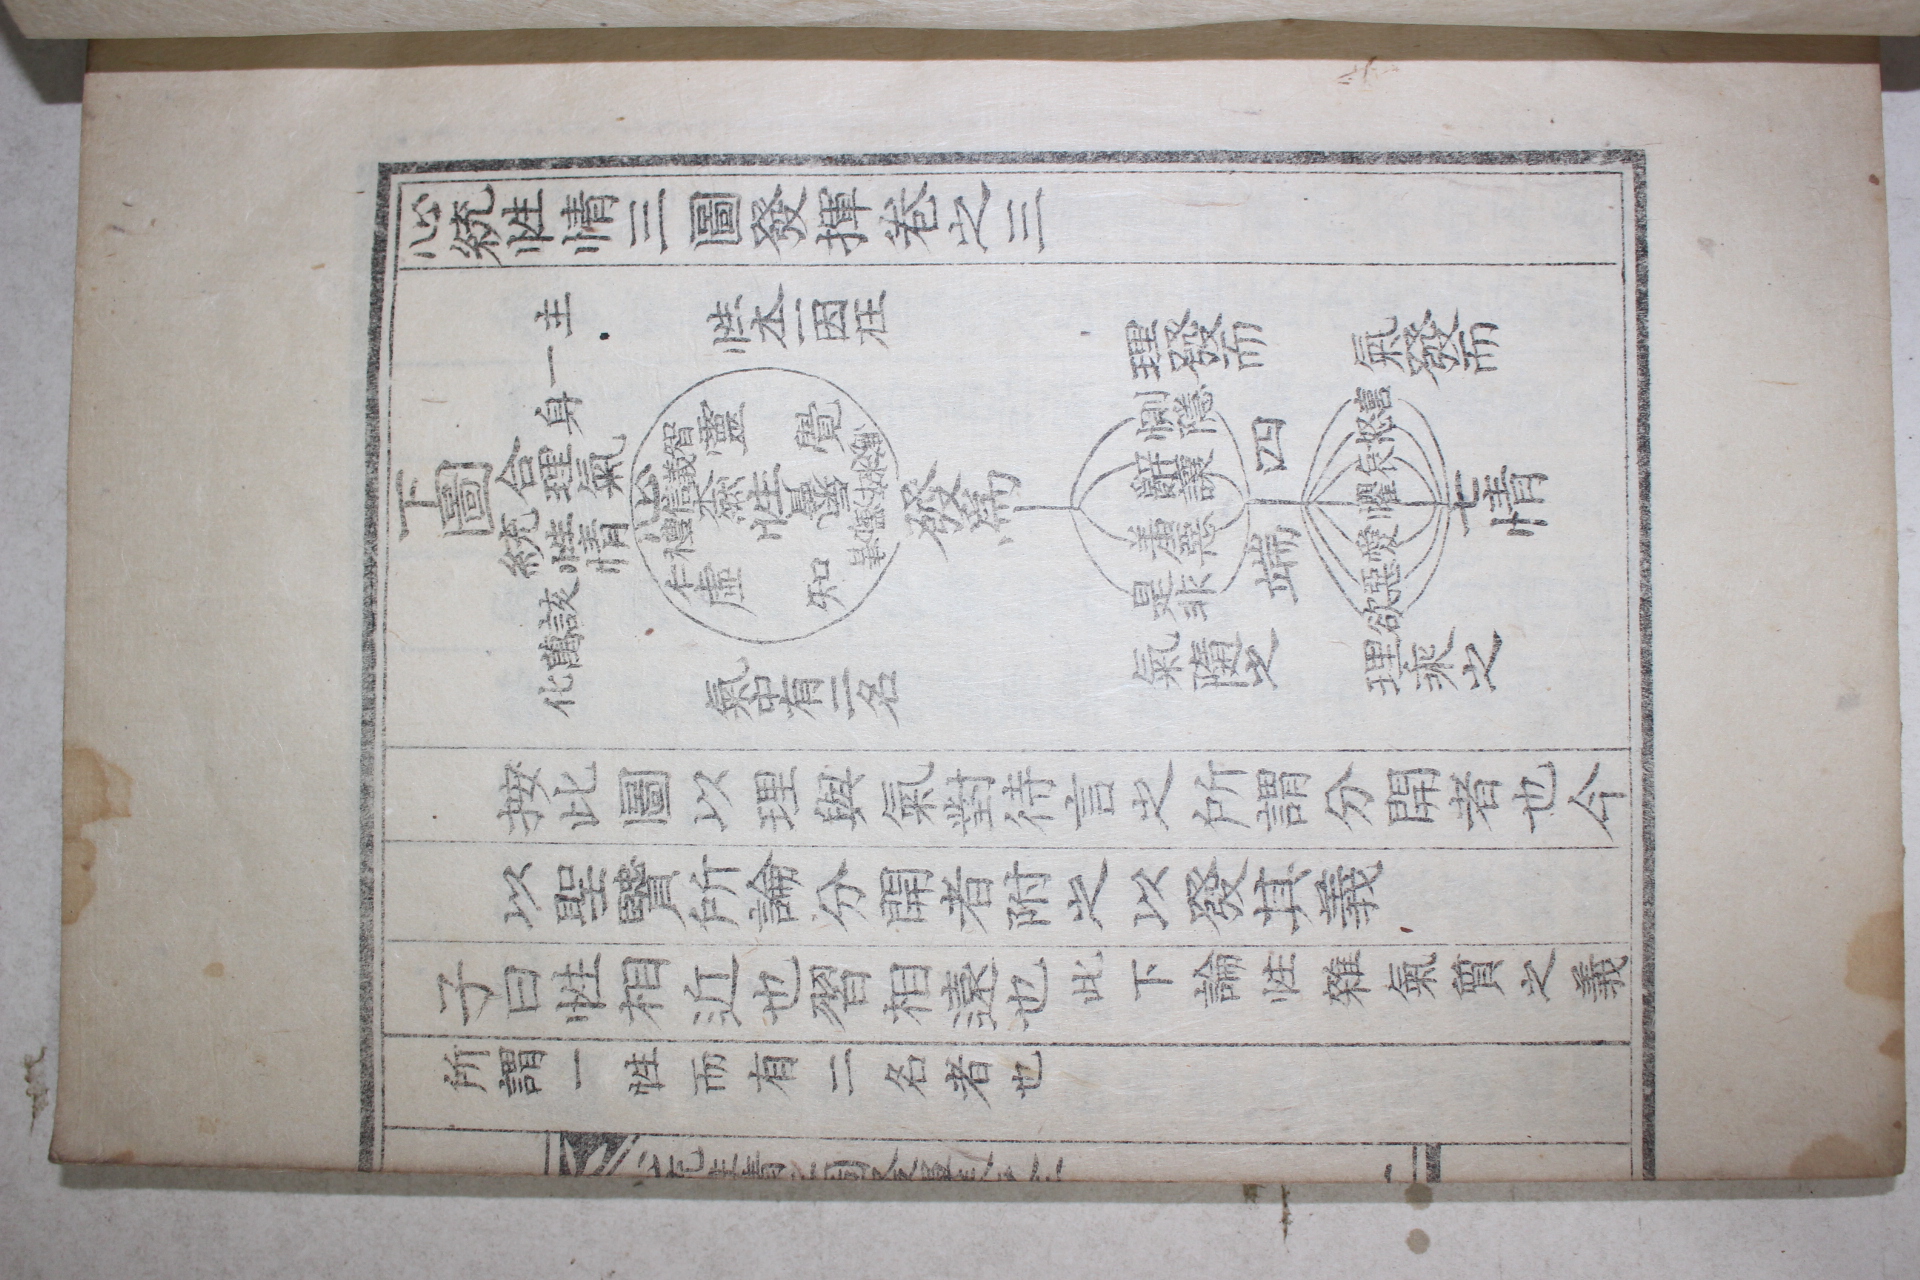 心統性情三圖發揮卷之三
下圖
合理氣
統性情
主一身
該萬化
心
仁禮信義智
虛靈
本然性
知覺
性本一因在
氣中有二名
發爲
理發而
氣隨之
惻隱
辭讓
羞惡
是非
四端
氣發而
理乘之
喜怒哀懼愛惡欲
七情
按此圖以理與氣對待言之所謂分開者也今
以聖賢所論分開者附之以發其義
子曰性相近也習相遠也此下論性雜氣質之義
所謂一性而有二名者也